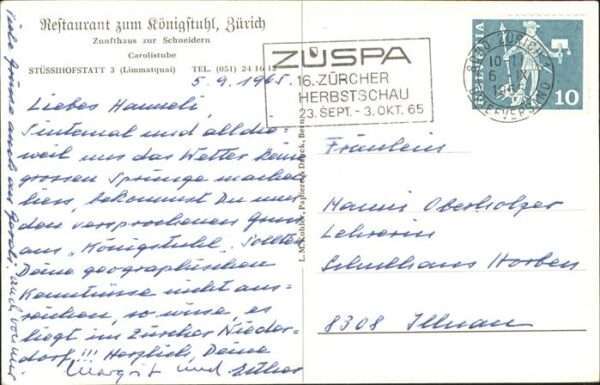 Restaurant zum Königstuhl, Zürich
Zunfthaus zur Schneidern
Carolistube
STÜSSIHOFSTATT 3 (Limmatquai) TEL. (051) 24 16
5.9.1965
Liebes Hanneli,
Sintemal und alldie-
weil uns das Wetter keine
grossen Sprünge machen
liess, bekommst Du nur
den versprochenen Gruss
aus „Königstuhl". Sollten
Deine geographischen
Kenntnisse nicht aus-
reichen, so wisse, es
liegt im Zürcher Nieder-
dorf!!! Herzlich, Deine
Margrit und Esther
Liebe Grüsse auch von
auch von mir
L. M. Kohler, Papeterie, Druck, Bern
ZÜSPA
16. ZÜRCHER
HERBSTSCHAU
23. SEPT. - 3. OKT. 65
ZÜRICH
BRIEFVERSAND
6 IX
HELVETIA
10
Fräulein
Hanni Oberholzer
Lehrerin
Schulhaus Horben
8308 Illnau